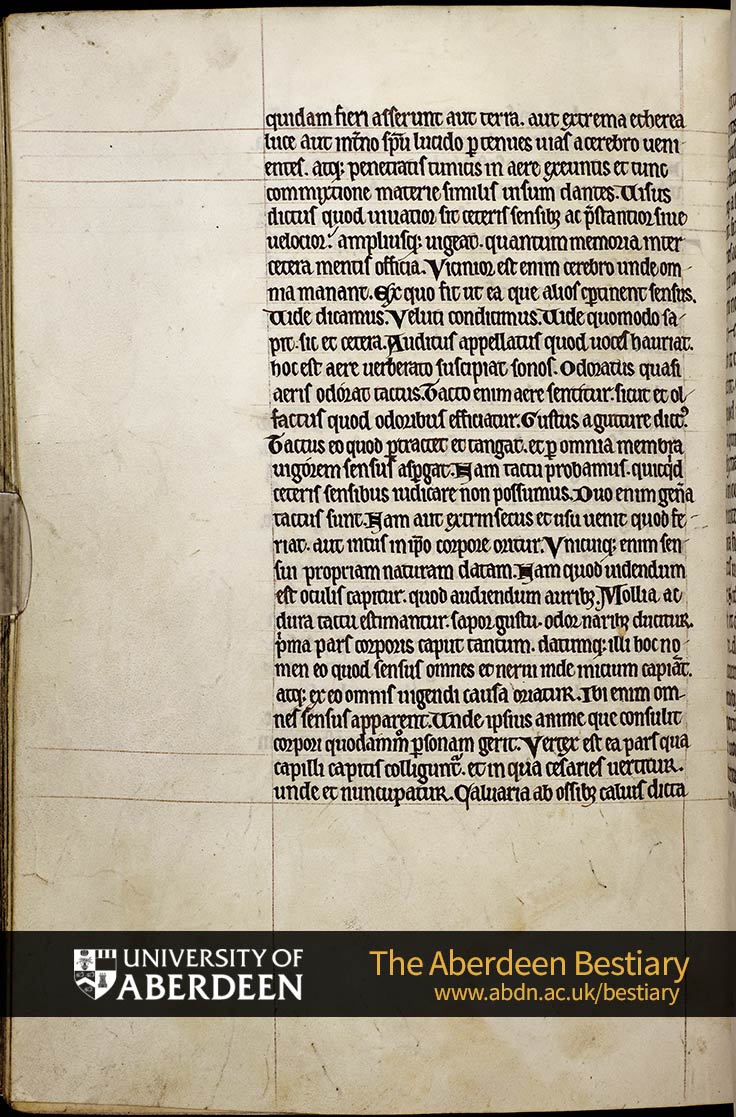 quidam fieri asserunt aut terra. aut extrema etherea
luce aut int̄no sp̄u lucido p tenues uias a cerebro ueni
entes. atq; penetratis tunicis in aere exeuntis et tunc
commixtione materie similis uisum dantes. Uisus
dictus quod uiuatior sit ceteris sensib; ac p̄stantior siue
uelocior. ampliusq; uigeat. quantum memoria inter
cetera mentis officia. Vicinior est enim cerebro unde om
nia manant. Ex quo fit ut ea que alios ꝑtinent sensus.
Uide dicamus. Veluti cum dicimus. Uide quomodo sa
pit. sic et cetera. Auditus appellatus quod uoces hauriat.
hoc est aere uerberato suscipiat sonos. Odoratus quasi
aeris odorat tactus. Tacto enim aere sentitur. sicut et ol
factus quod odoribus efficiatur. Gustus a gutture dict᾿.
Tactus eo quod ꝑtractet et tangat. et ꝑ omnia membra
uigorem sensus aspgat. Nam tactu probamus. quicq̇d
ceteris sensibus iudicare non possumus. Duo enim gen̄a
tactus sunt. Nam aut extrinsecus et usu uenit quod fe
riat. aut intus in ip̄o corpore oritur. Vnicuiq; enim sen
sui propriam naturam datam. Nam quod uidendum
est oculis capitur. quod audiendum aurib;. Mollia ac
dura tactu estimantur. sapor gustu. odor narib; ducitur.
p̍ma pars corporis caput tantum. datumq; illi hoc no
men eo quod sensus omnes et nerui inde initium capiāt.
atq; ex eo omnis uigendi causa oriatur. Ibi enim om
nes sensus apparent. Unde ipsius anime que consulit
corpori quodam̊m̊ ꝑsonam gerit. Vertex est ea pars qua
capilli capitis colligunt᷑. et in qua cesaries uertitur.
unde et nuncupatur. Caluaria ab ossib; caluis dicta
UNIVERSITY OF
ABERDEEN
The Aberdeen Bestiary
www.abdn.ac.uk/bestiary